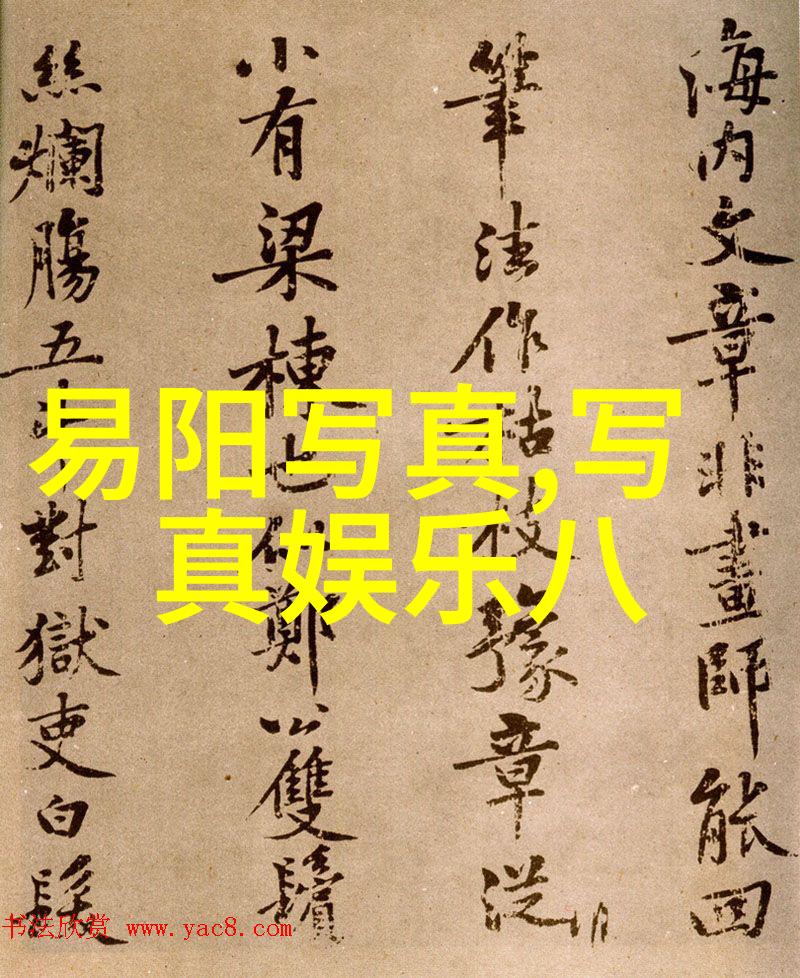 海内文章非畫師能回
筆法作枯枝豫章從
小有梁棟也似鄭公雙鬢
絲爛腸五斗對獄吏白髮
易阳写真,写
真娱乐八
书法欣赏 www.yac8.com